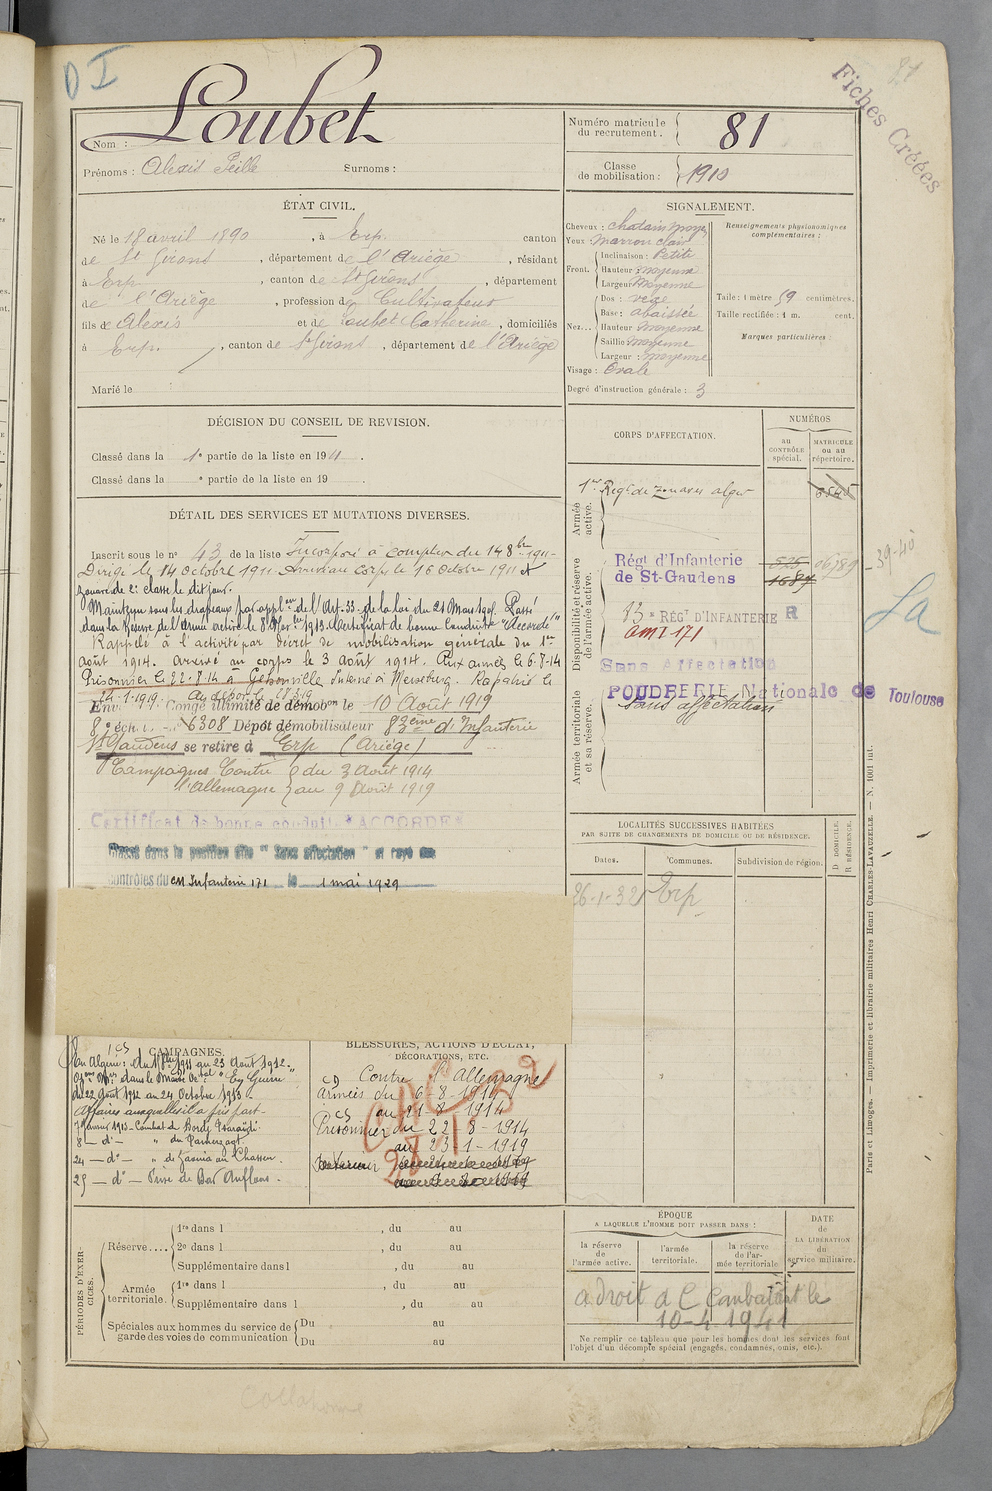 D I
81
Fiches Créées
Loubet
Nom :
Prénoms : Alexis Surnoms :
Numéro matricule du recrutement. 81
Classe de mobilisation : 1910
ÉTAT CIVIL.
Né le 18 avril 1890, à Erp. canton
de St Girons, département de l'Ariège, résidant
à Erp, canton de St Girons, département
de l'Ariège, profession de Cultivateur
fils de Alexis et de Loubet Catherine, domiciliés
à Erp., canton de St Girons, département de l'Ariège
Marié le
SIGNALEMENT.
Cheveux : chatain moyen
Yeux : marron clair
Front. Inclinaison : Petite
Hauteur : moyenne
Largeur : Moyenne
Nez... Dos : vexe
Base : abaissée
Hauteur Moyenne
Saillie : moyenne
Largeur : moyenne
Visage : Ovale
Degré d'instruction générale : 3
Renseignements physionomiques complémentaires :
Taille : 1 mètre 59 centimètres.
Taille rectifiée : 1 m. cent.
Marques particulières :
DÉCISION DU CONSEIL DE REVISION.
Classé dans la 1e partie de la liste en 1911.
Classé dans la e partie de la liste en 19 .
DÉTAIL DES SERVICES ET MUTATIONS DIVERSES.
Inscrit sous le n° 43 de la liste Incorporé à compter du 14 8bre 1911
Dirigé le 14 Octobre 1911. Arrivé au Corps le 16 Octobre 1911 et
zouave de 2e classe le dit jour.
Maintenu sous les drapeaux par appl on de l'Art. 33 de la loi du 21 Mars 1905. Passé
dans la Réserve de l'Armée active le 8 Nov bre 1913. Certificat de bonne Conduite "Accordé"
Rappelé à l'activité par décret de mobilisation générale du 1er
Août 1914. Arrivé au corps le 3 Août 1914. Aux armées le 6.8.14
Prisonnier le 22.8.14 à interné à Merseburg. Rapatrié le
24.1.1919. Au dépôt le
Env. Congé illimité de démobon le 10 Août 1919
8e éch. 6308 Dépôt démobilisateur 83ème d'Infanterie
St Gaudens se retire à Erp (Ariège)
Campagnes Contre l'Allemagne du 3 Août 1914
au 9 Août 1919
Certificat de bonne conduite "ACCORDÉ"
Classé dans la position dite "Sans affectation" et rayé des
contrôles du CM Infanterie 171 le 1 mai 1929
CORPS D'AFFECTATION.
NUMÉROS
au CONTRÔLE spécial.
MATRICULE ou au répertoire.
Armée active.
1er Régt de zouaves alger
Disponibilité et réserve de l'armée active.
Régt d'Infanterie
de St-Gaudens
525
1687
39-40
83e RÉGt D'INFANTERIE R
CMI 171
La
Sans Affectation
POUDRERIE Nationale de Toulouse
Armée territoriale et sa réserve.
Sans affectation
LOCALITÉS SUCCESSIVES HABITÉES
PAR SUITE DE CHANGEMENTS DE DOMICILE OU DE RÉSIDENCE.
Dates. Communes. Subdivision de région. D DOMICILE. R RÉSIDENCE.
26-1-32 Erp
CAMPAGNES.
En Algérie : du 1911 au 23 Août 1912.
Opons dans le Maroc "En Guerre"
du 22 Août 1912 au 24 Octobre 1913
Affaires auxquelles il a pris part
7 Janvier 1913 - Combat de Bordj
8 — d° — " du
24 — d° — " de
25 — d° — Prise de
BLESSURES, ACTIONS D'ÉCLAT, DÉCORATIONS, ETC.
Contre l'Allemagne
Armées du 6-8-1914
au 21-8-1914
Prisonnier du 22-8-1914
au 23-1-1919
PÉRIODES D'EXERCICES.
Réserve.... 1re dans l , du au
2e dans l , du au
Supplémentaire dans l , du au
Armée territoriale. 1re dans l , du au
Supplémentaire dans l , du au
Spéciales aux hommes du service de garde des voies de communication Du au
Du au
ÉPOQUE
A LAQUELLE L'HOMME DOIT PASSER DANS :
la réserve de l'armée active.
l'armée territoriale.
la réserve de l'armée territoriale
DATE DE LA LIBÉRATION du service militaire.
a droit à C Combatant le
10-4-1941
Ne remplir ce tableau que pour les hommes dont les services font
l'objet d'un décompte spécial (engagés, condamnés, omis, etc.).
Paris et Limoges. — Imprimerie et librairie militaires Henri CHARLES-LAVAUZELLE. — N. 1001 int.